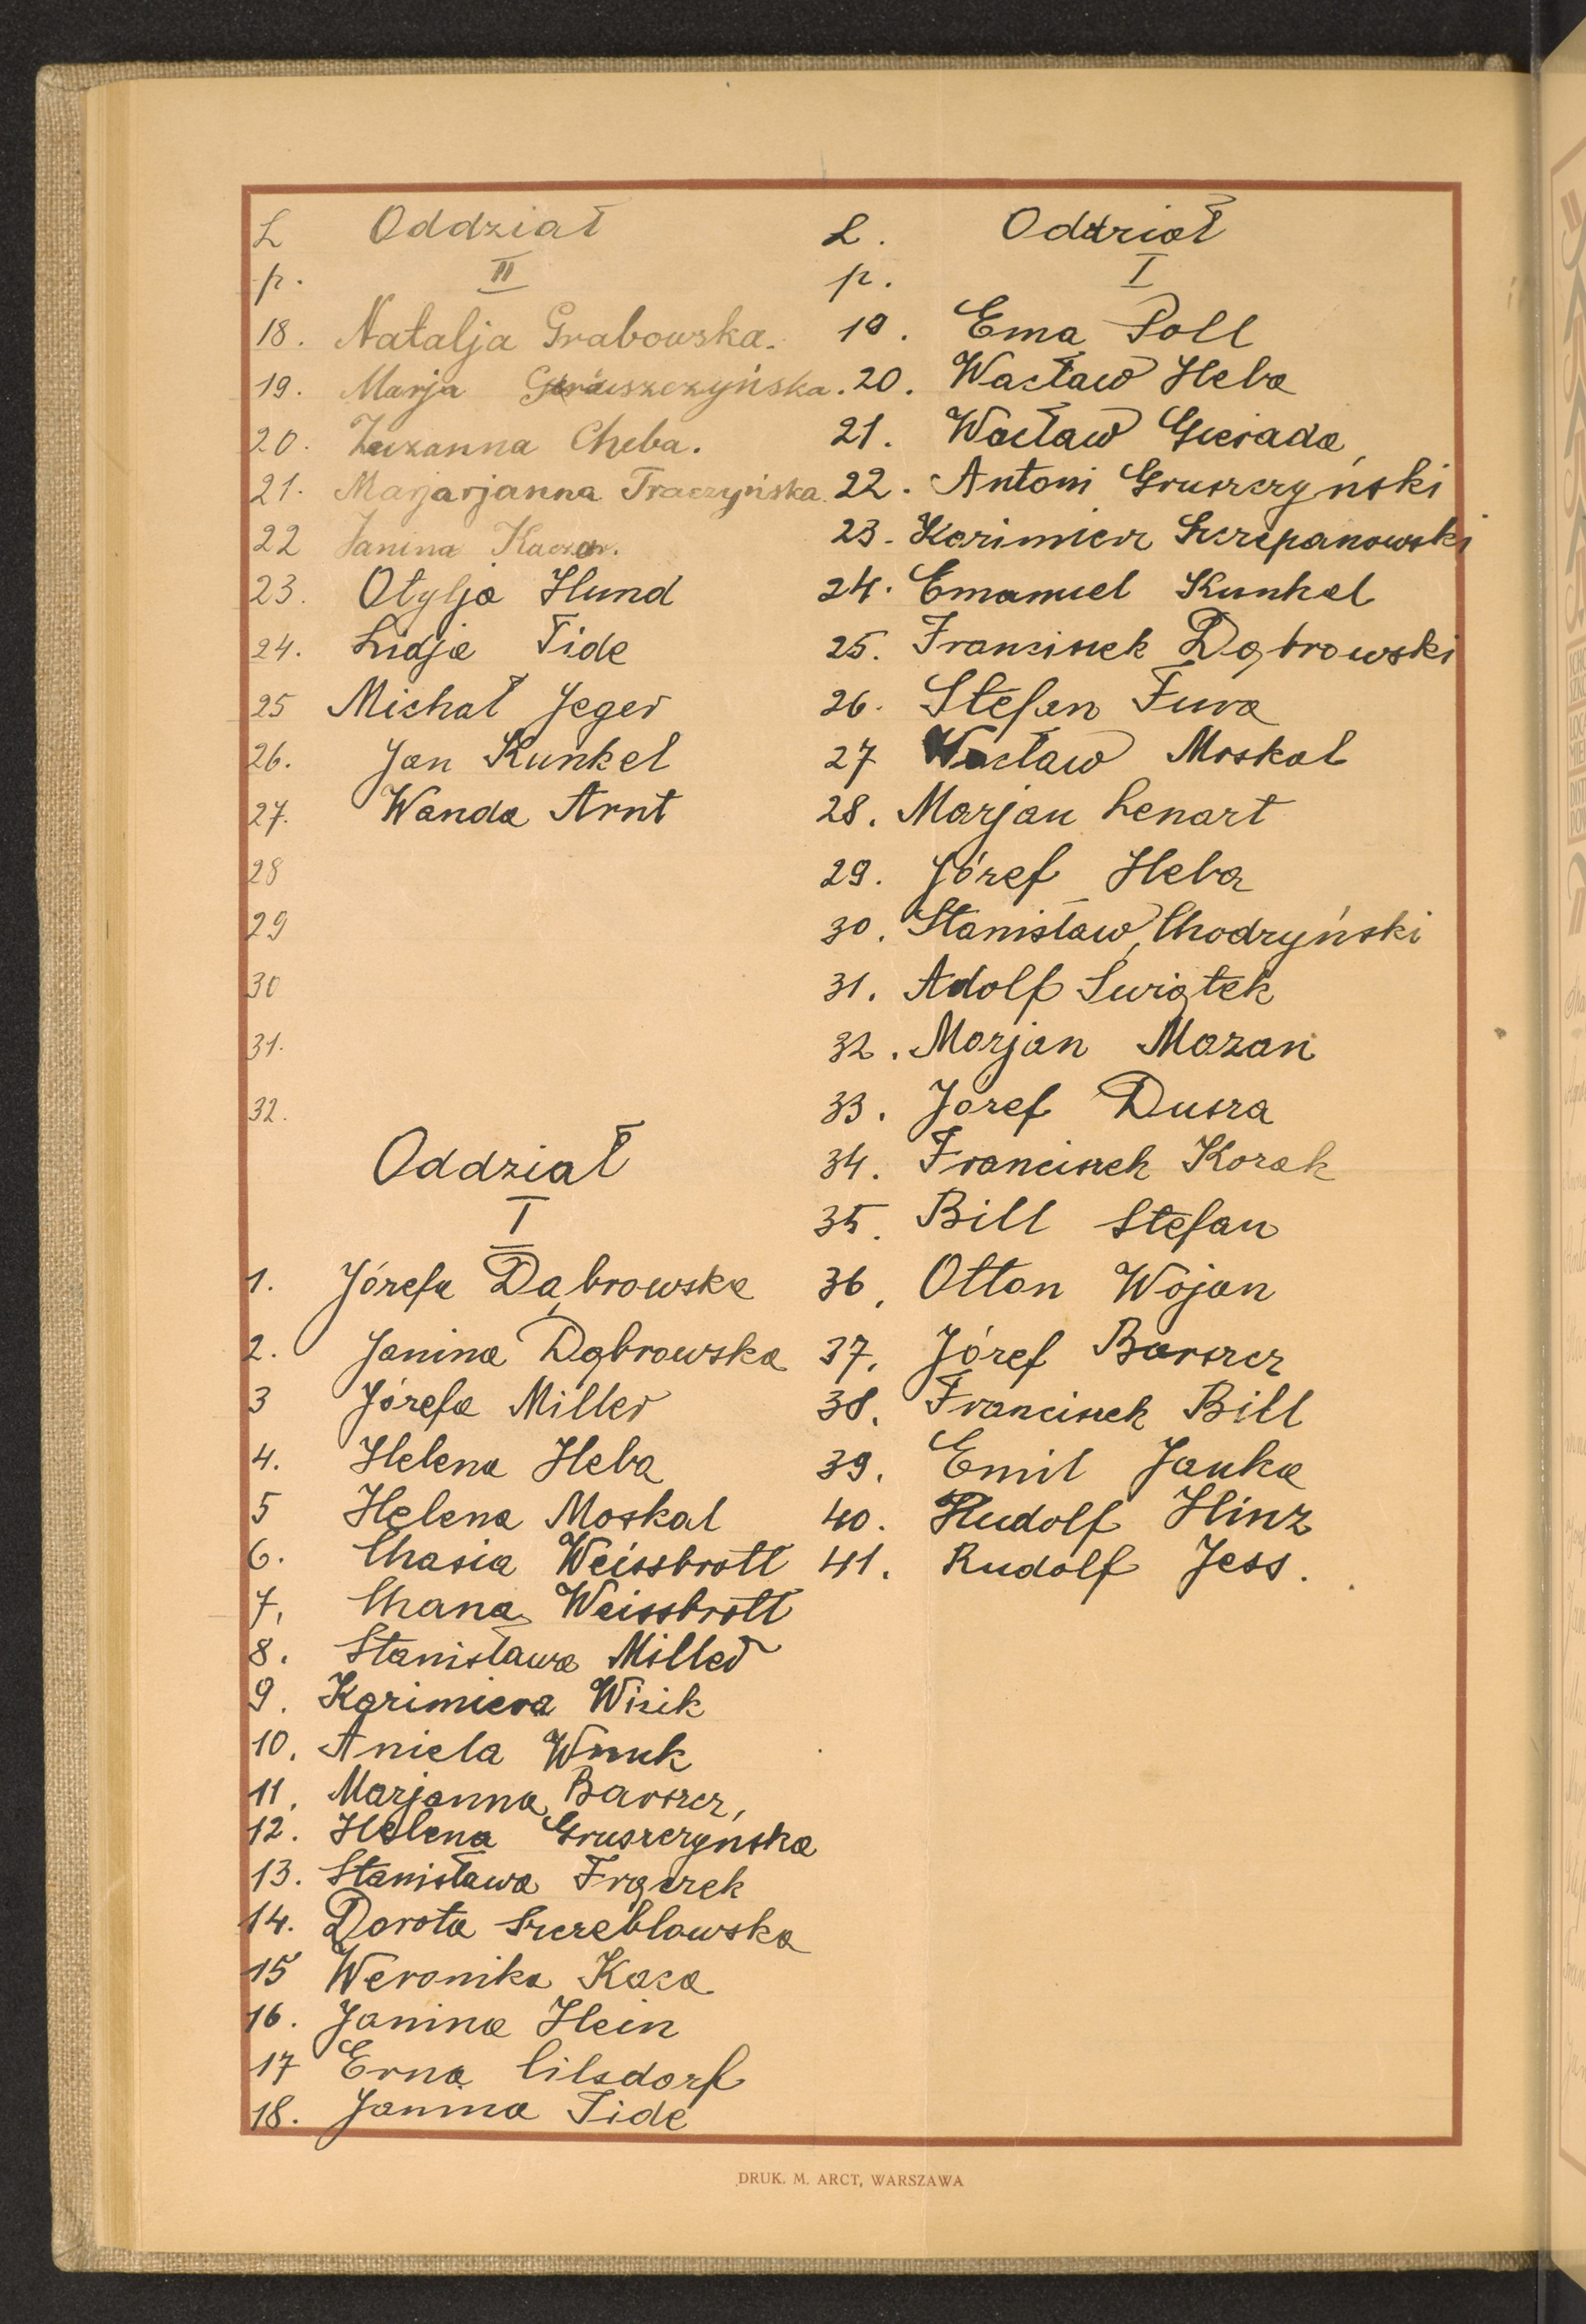 L Oddział
p. II
18. Natalja Grabowska.
19. Marja Gruszczyńska.
20. Zuzanna Cheba.
21. Marjarjanna Traczyńska.
22 Janina
23. Otylja Hund
24. Lidja Tide
25 Michał Jeger
26. Jan Kunkel
27. Wanda Arnt
28
29
30
31.
32.
Oddział
I
1. Józefa Dąbrowska
2. Janina Dąbrowska
3 Józefa Miller
4. Helena Heba
5 Helena Moskal
6. Chasia Weissbrott
7. Chana Weissbrott
8. Stanisława Miller
9. Kazimiera Wisik
10. Aniela Wnuk
11. Marjanna Barszcz,
12. Helena Gruszczyńska
13. Stanisława Frączek
14. Dorota Szczebłowska
15 Weronika Kasa
16. Janina Hein
17 Erna Cilsdorf
18. Janina Tide
L. Oddział
p. I
19. Ema Poll
20. Wacław Heba
21. Wacław Gierada
22. Antoni Gruszczyński
23. Kazimierz Szczepanowski
24. Emanuel Kunkel
25. Franciszek Dąbrowski
26. Stefan Fura
27 Wacław Moskal
28. Marjan Lenart
29. Józef Heba
30. Stanisław Chodzyński
31. Adolf Świątek
32. Marjan Mazan
33. Józef Dusza
34. Franciszek Kozak
35. Bill Stefan
36. Otton Wojan
37. Józef Barszcz
38. Franciszek Bill
39. Emil Janka
40. Rudolf Hinz
41. Rudolf Jess.
DRUK. M. ARCT, WARSZAWA